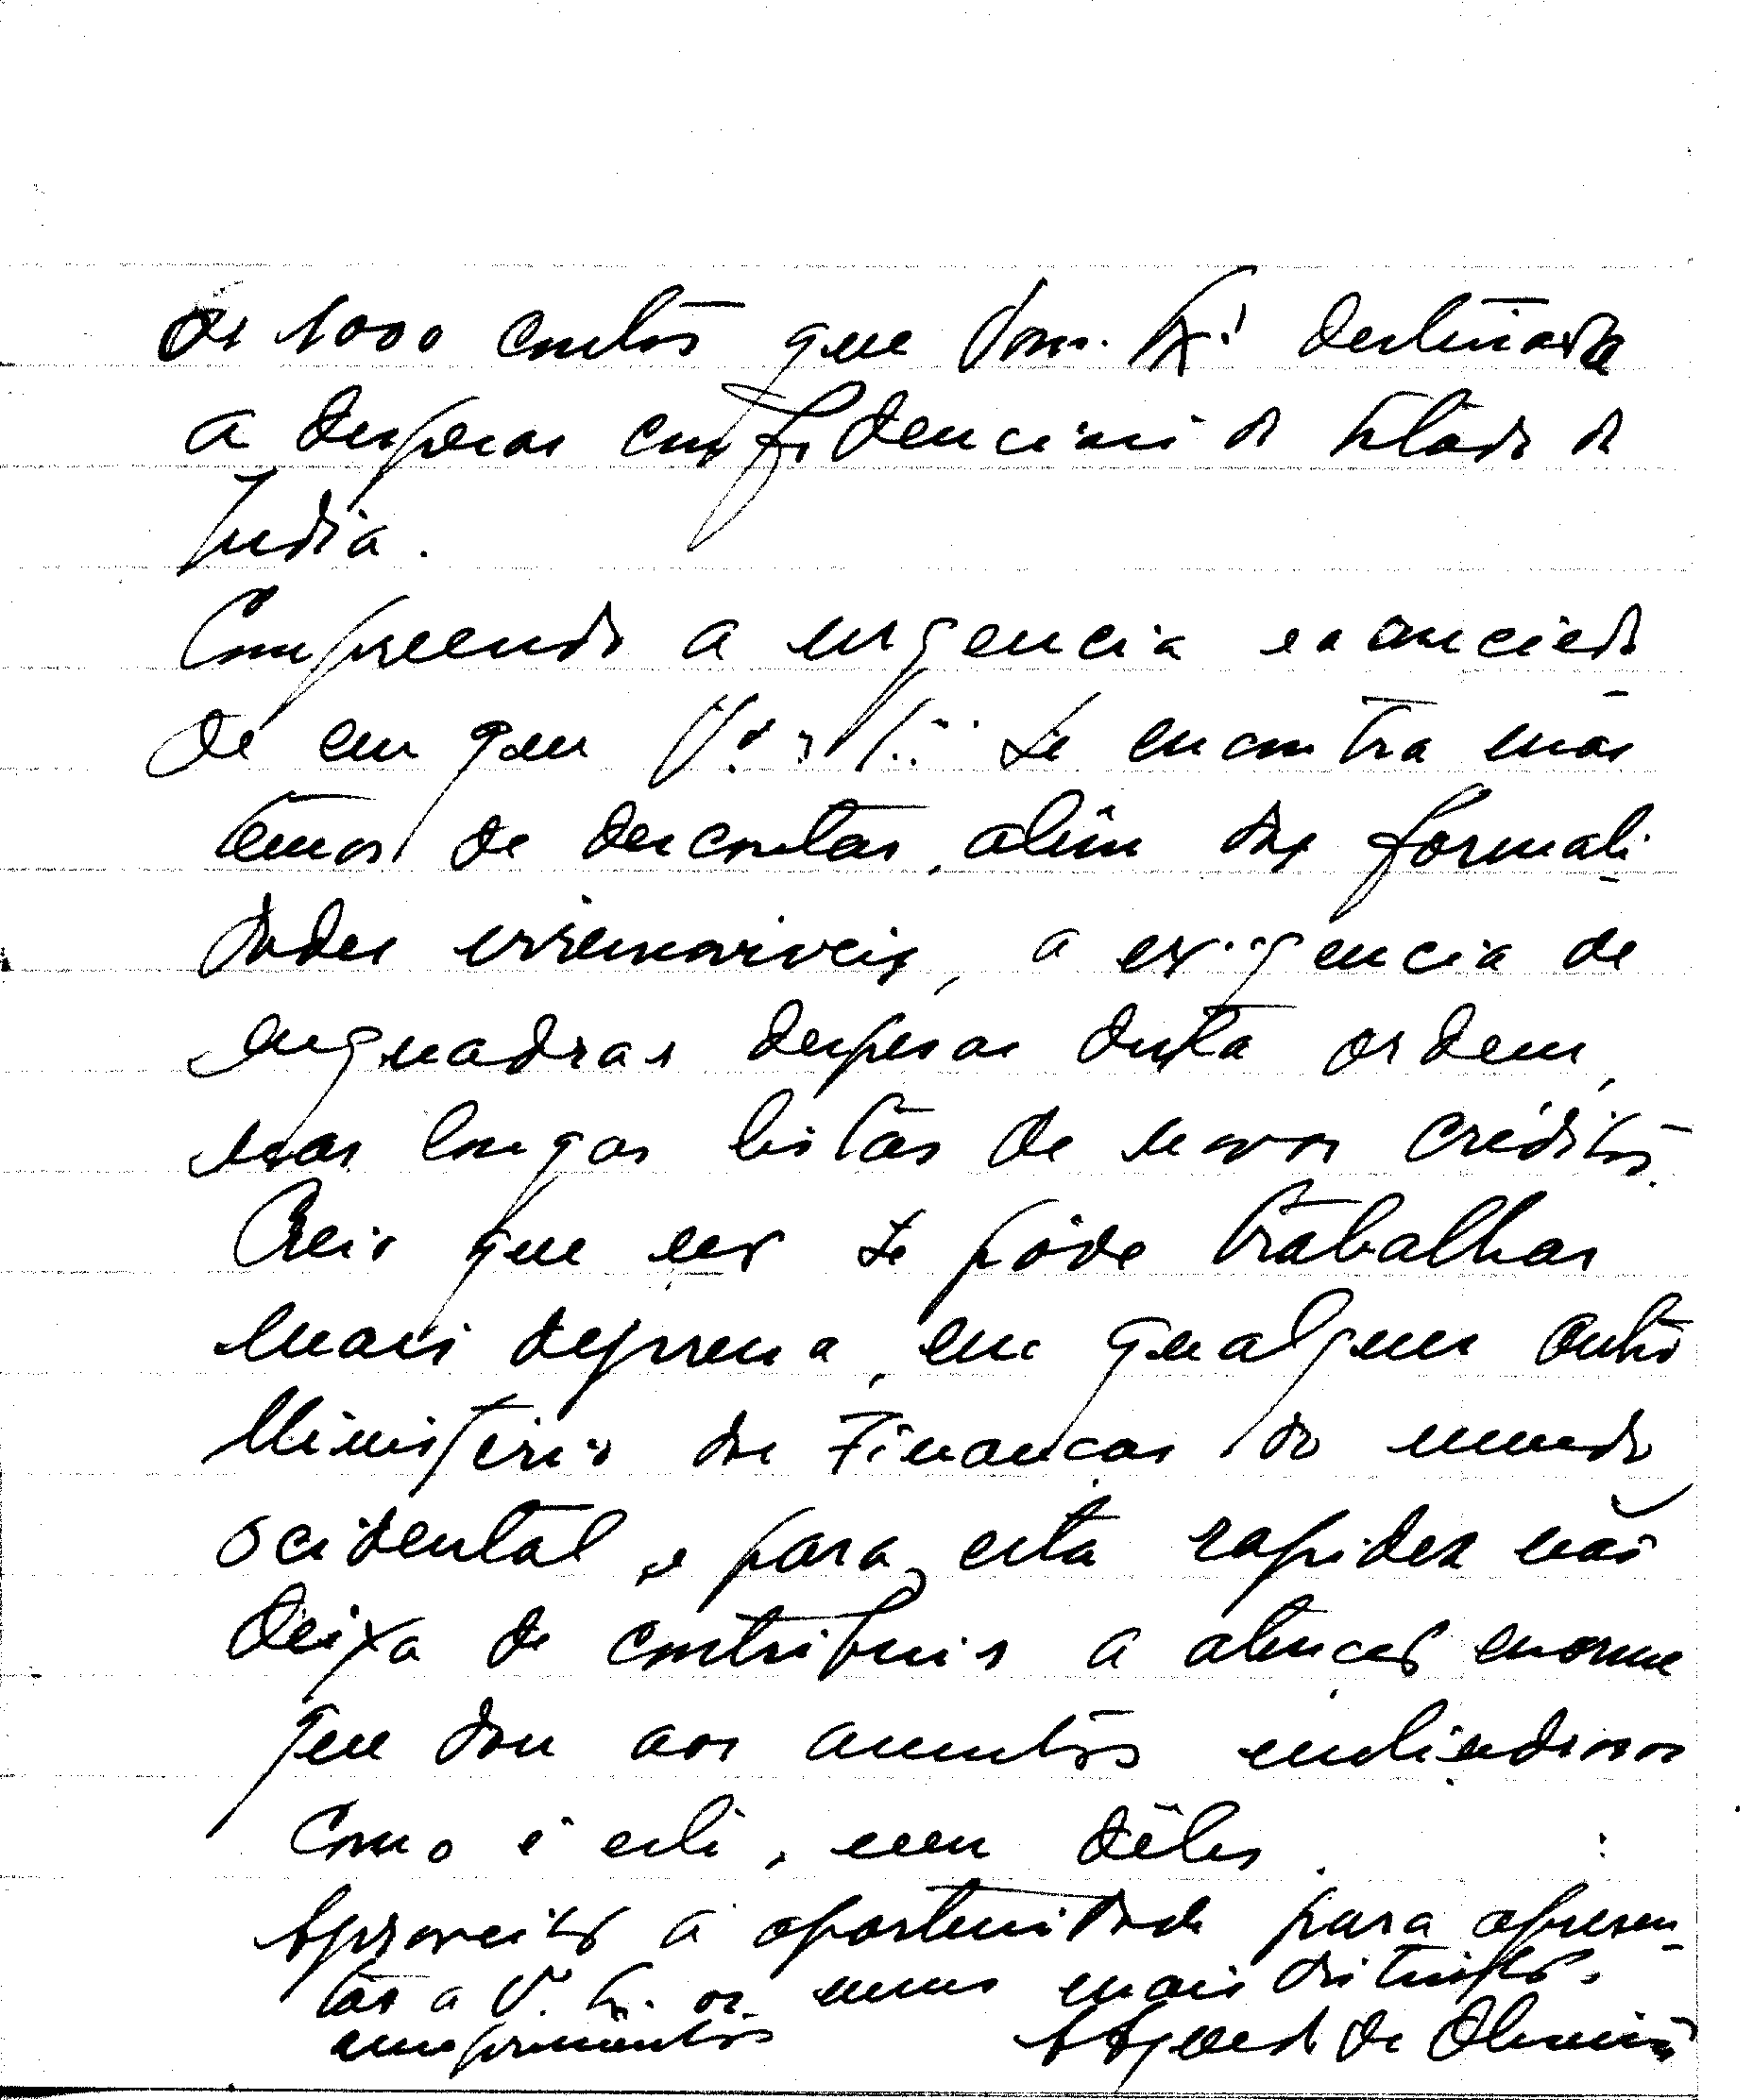 de 1000 contos que Vossa Exª destinada
a despesas confidenciais do Estado da
India.
Compreendo a urgencia e a ancieda
de em que V. Exª se encontra mas
temos de descontar, além das formali-
dades irremoviveis, a exigencia de
enquadrar despesas desta ordem,
nas longas listas de novos créditos.
Creio que não se póde trabalhar
mais depressa, em qualquer outro
Ministério das Finanças do mundo
ocidental e para esta rapidez não
deixa de contribuir a atenção enorme
que dou aos assuntos melindrosos
como é este, um dêles.
Aproveito a oportunidade para apresen-
tar a V. Ex. os meus mais distintos
cumprimentos
Aguedo de Oliveira